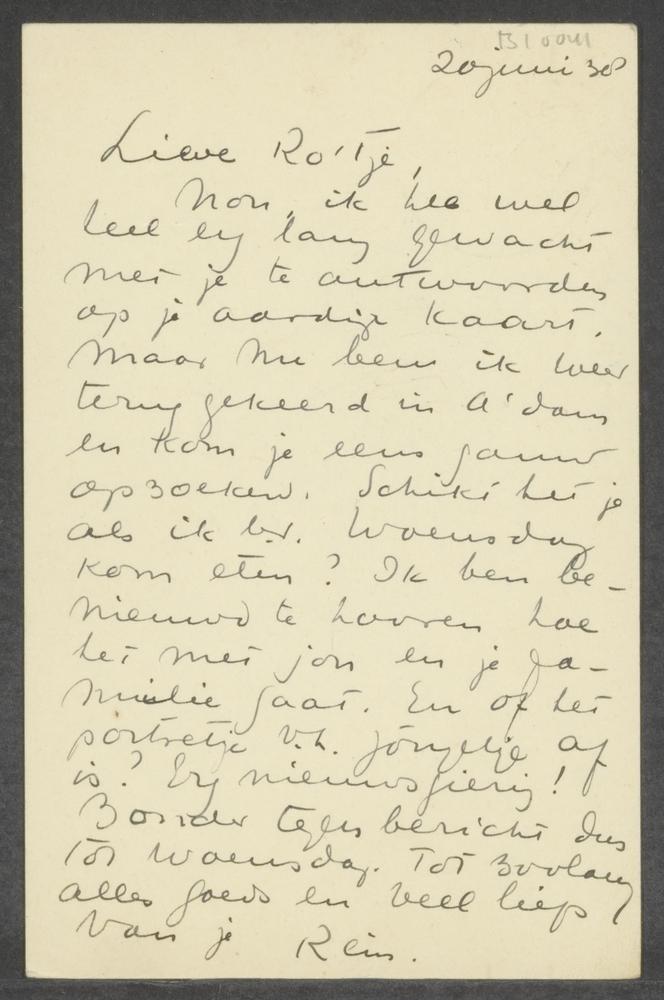 20 juni 38
Lieve Ro'tje,
Nou, ik heb wel
heel erg lang gewacht
met je te antwoorden
op je aardige kaart.
Maar nu ben ik weer
teruggekeerd in A'dam
en kom je eens gauw
opzoeken. Schikt het je
als ik b.v. Woensdag
kom eten? Ik ben be-
nieuwd te hooren hoe
het met jou en je fa-
milie gaat. En of het
portretje v.h. jongetje af
is? Erg nieuwsgierig!
Zonder tegenbericht dus
tot Woensdag. Tot zoolang
alles goeds en veel liefs
van je Rein.